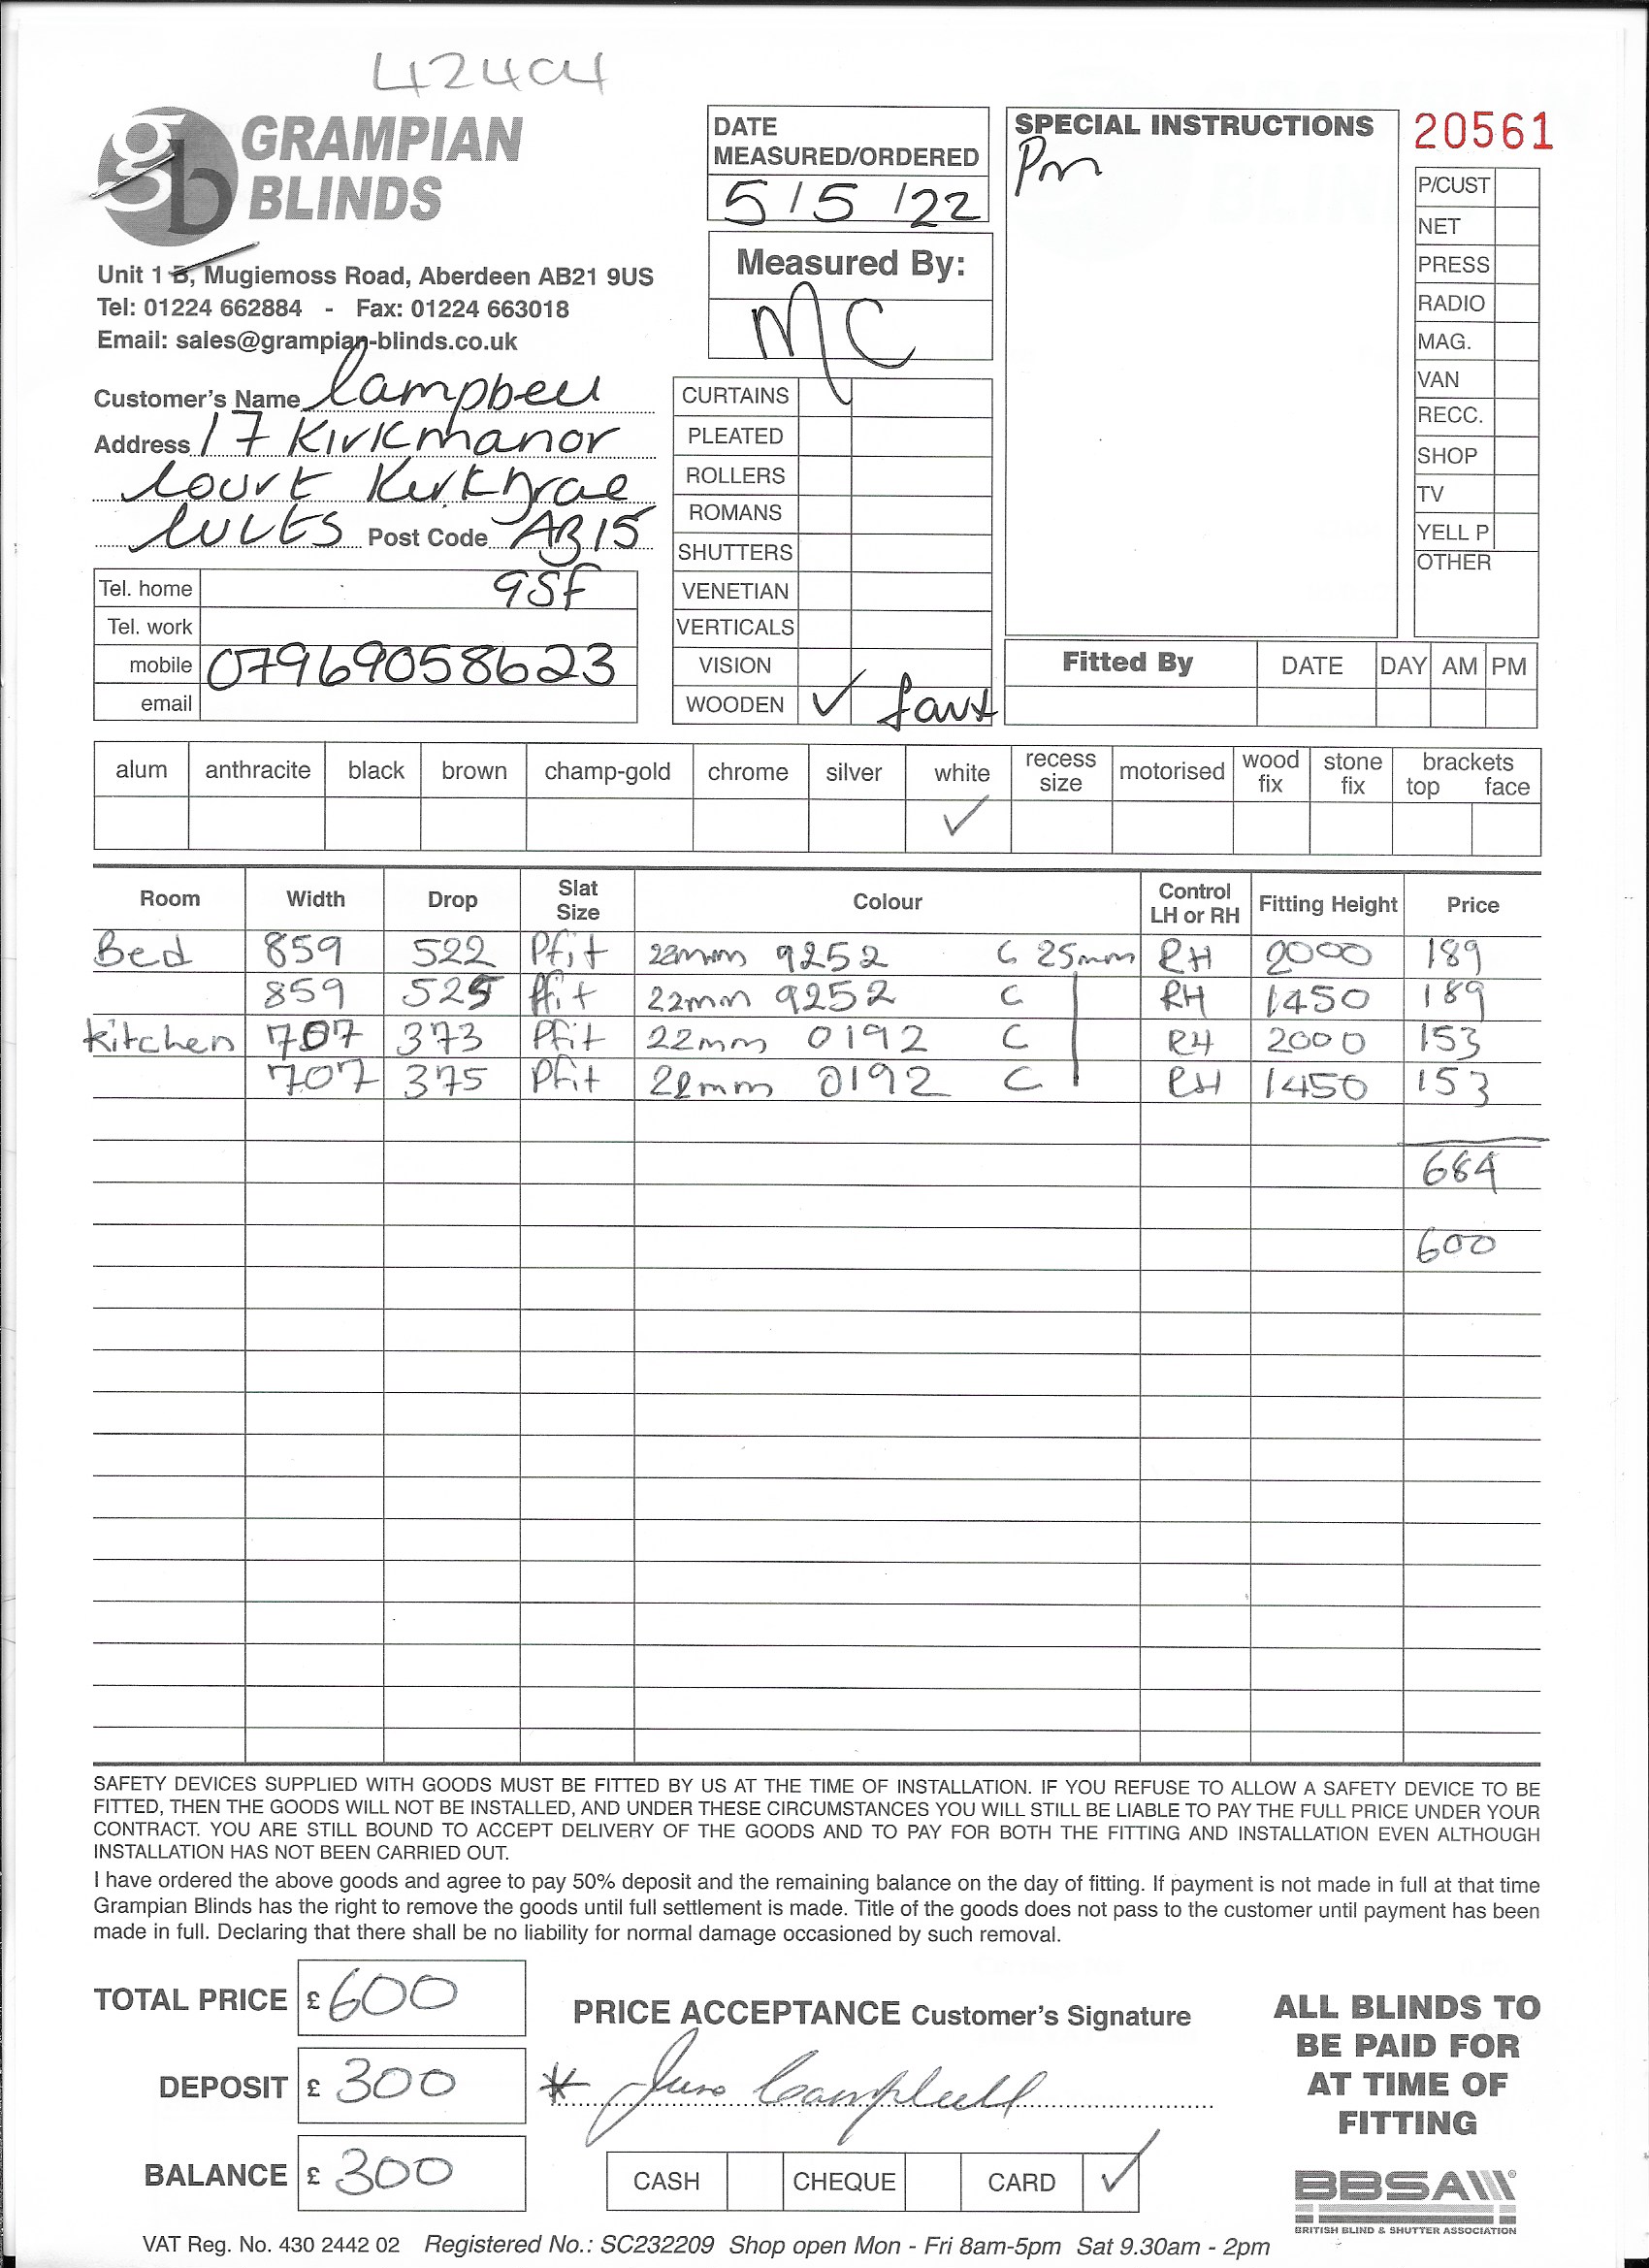 42404
GRAMPIAN
BLINDS
Unit 1 B, Mugiemoss Road, Aberdeen AB21 9US
Tel: 01224 662884 - Fax: 01224 663018
Email: sales@grampian-blinds.co.uk
Customer's Name Campbell
Address 17 Kirkmanor
Court Kirkbrae
Cults Post Code AB15
9SF
Tel. home
Tel. work
mobile 07969058623
email
DATE
MEASURED/ORDERED
5/5/22
Measured By:
MC
CURTAINS
PLEATED
ROLLERS
ROMANS
SHUTTERS
VENETIAN
VERTICALS
VISION
WOODEN ✓
SPECIAL INSTRUCTIONS
Pm
20561
P/CUST
NET
PRESS
RADIO
MAG.
VAN
RECC.
SHOP
TV
YELL P
OTHER
Fitted By DATE DAY AM PM
alum anthracite black brown champ-gold chrome silver white recess size motorised wood fix stone fix brackets top face
✓
Room Width Drop Slat Size Colour Control LH or RH Fitting Height Price
Bed 859 522 Pfit 22mm 9252 C 25mm RH 2000 189
859 525 Pfit 22mm 9252 C RH 1450 189
Kitchen 707 373 Pfit 22mm 0192 C RH 2000 153
707 375 Pfit 22mm 0192 C RH 1450 153
684
600
SAFETY DEVICES SUPPLIED WITH GOODS MUST BE FITTED BY US AT THE TIME OF INSTALLATION. IF YOU REFUSE TO ALLOW A SAFETY DEVICE TO BE
FITTED, THEN THE GOODS WILL NOT BE INSTALLED, AND UNDER THESE CIRCUMSTANCES YOU WILL STILL BE LIABLE TO PAY THE FULL PRICE UNDER YOUR
CONTRACT. YOU ARE STILL BOUND TO ACCEPT DELIVERY OF THE GOODS AND TO PAY FOR BOTH THE FITTING AND INSTALLATION EVEN ALTHOUGH
INSTALLATION HAS NOT BEEN CARRIED OUT.
I have ordered the above goods and agree to pay 50% deposit and the remaining balance on the day of fitting. If payment is not made in full at that time
Grampian Blinds has the right to remove the goods until full settlement is made. Title of the goods does not pass to the customer until payment has been
made in full. Declaring that there shall be no liability for normal damage occasioned by such removal.
TOTAL PRICE £ 600
DEPOSIT £ 300
BALANCE £ 300
PRICE ACCEPTANCE Customer's Signature
* Campbell
CASH CHEQUE CARD ✓
ALL BLINDS TO
BE PAID FOR
AT TIME OF
FITTING
BBSA
BRITISH BLIND & SHUTTER ASSOCIATION
VAT Reg. No. 430 2442 02 Registered No.: SC232209 Shop open Mon - Fri 8am-5pm Sat 9.30am - 2pm